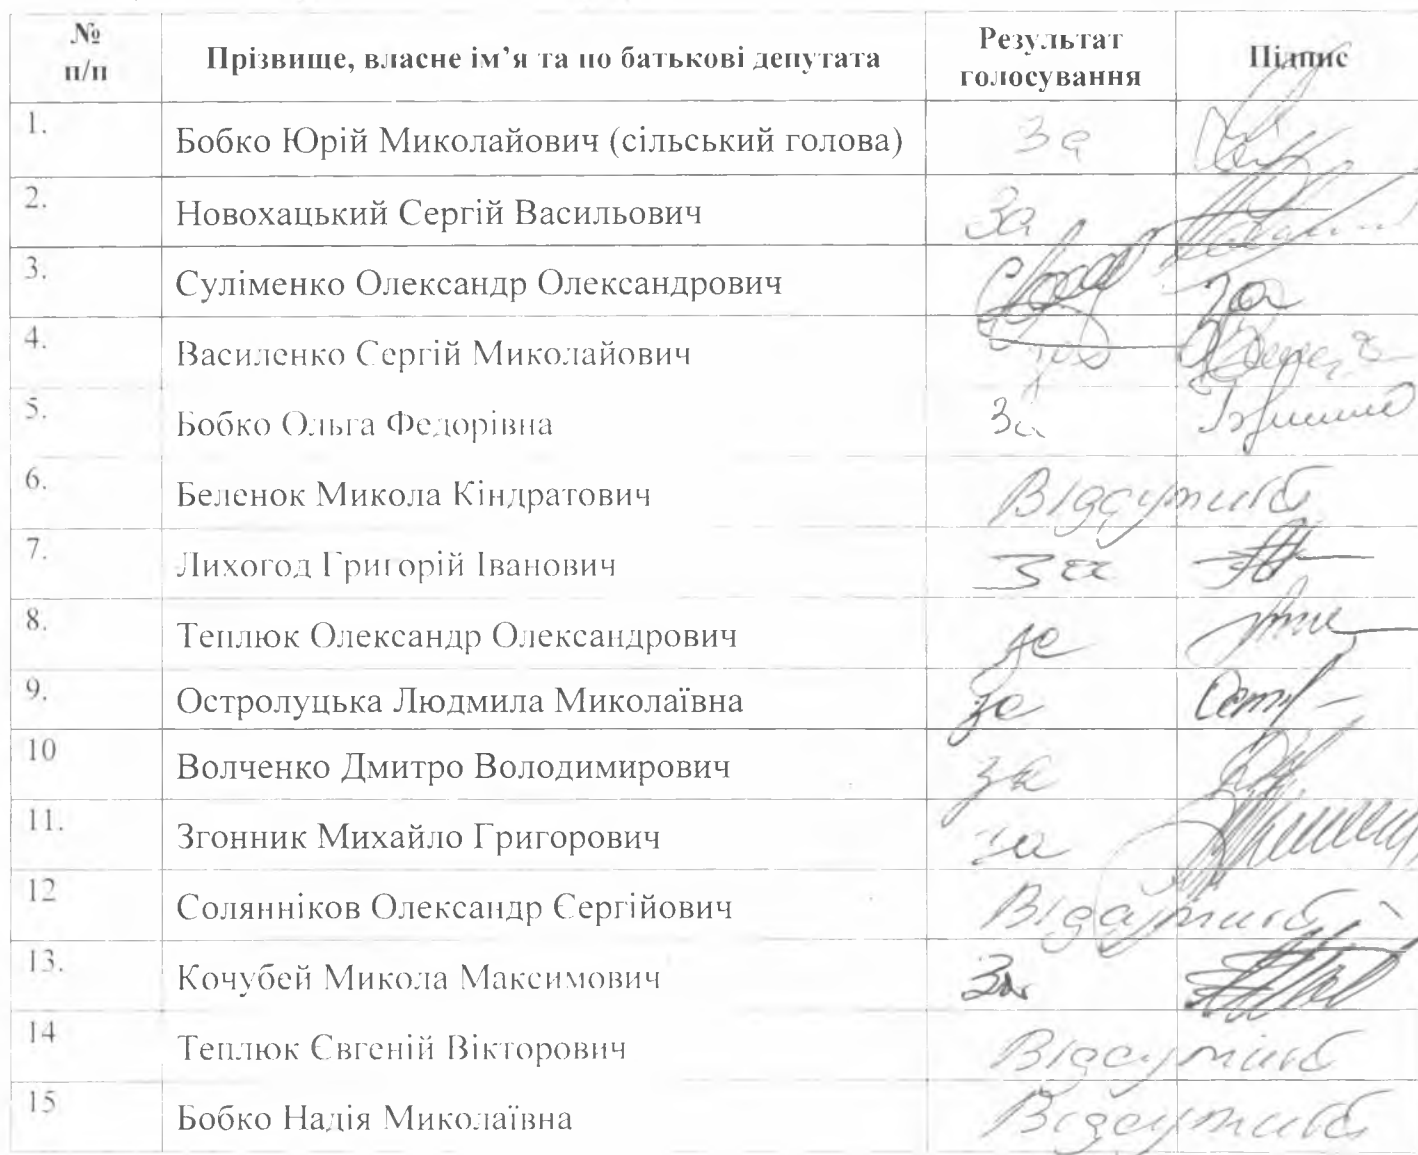 № п/п Прізвище, власне ім’я та по батькові депутата Результат голосування Підпис
1. Бобко Юрій Миколайович (сільський голова) За
2. Новохацький Сергій Васильович За
3. Суліменко Олександр Олександрович За
4. Василенко Сергій Миколайович
5. Бобко Ольга Федорівна За
6. Беленок Микола Кіндратович Відсутній
7. Лихогод Григорій Іванович За
8. Теплюк Олександр Олександрович за
9. Остролуцька Людмила Миколаївна за
10 Волченко Дмитро Володимирович за
11. Згонник Михайло Григорович за
12 Солянніков Олександр Сергійович Відсутній
13. Кочубей Микола Максимович За
14 Теплюк Євгеній Вікторович Відсутній
15 Бобко Надія Миколаївна Відсутній